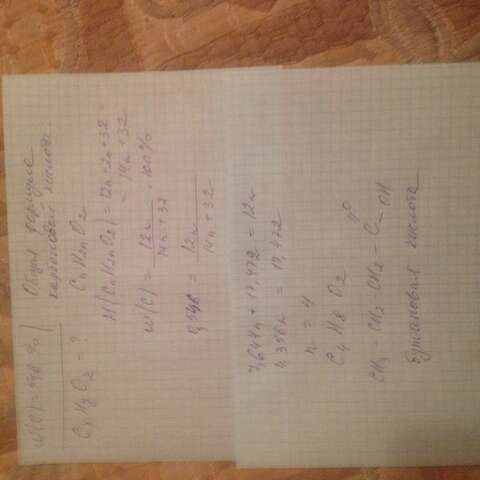 w(C) = 54,6 % Общая формула
карбоновой кислоты.
CxHyO2 - ? CnH2nO2
M(CnH2nO2) = 12n+2n+32 =
= 14n+32
w(C) = 12n / 14n+32 · 100%
0,546 = 12n / 14n+32
7,644n + 17,472 = 12n
4,356n = 17,472
n = 4
C4H8O2
CH3 - CH2 - CH2 - C
O
OH
бутановая кислота